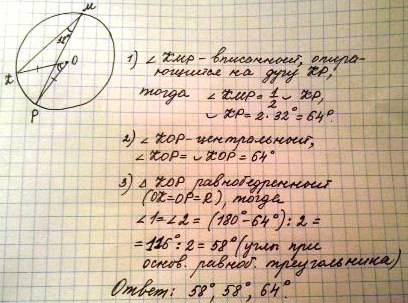 M
32°
O
K
P
1) ∠KMP - вписанный, опира-
ющийся на дугу KP,
тогда ∠KMP = 1/2 ◡ KP,
◡ KP = 2·32° = 64°.
2) ∠KOP - центральный,
∠KOP = ◡ KOP = 64°
3) △ KOP равнобедренный
(OK=OP=R), тогда
∠1=∠2 = (180°-64°):2 =
= 116°:2 = 58° (углы при
основ. равноб. треугольника)
Ответ: 58°, 58°, 64°.